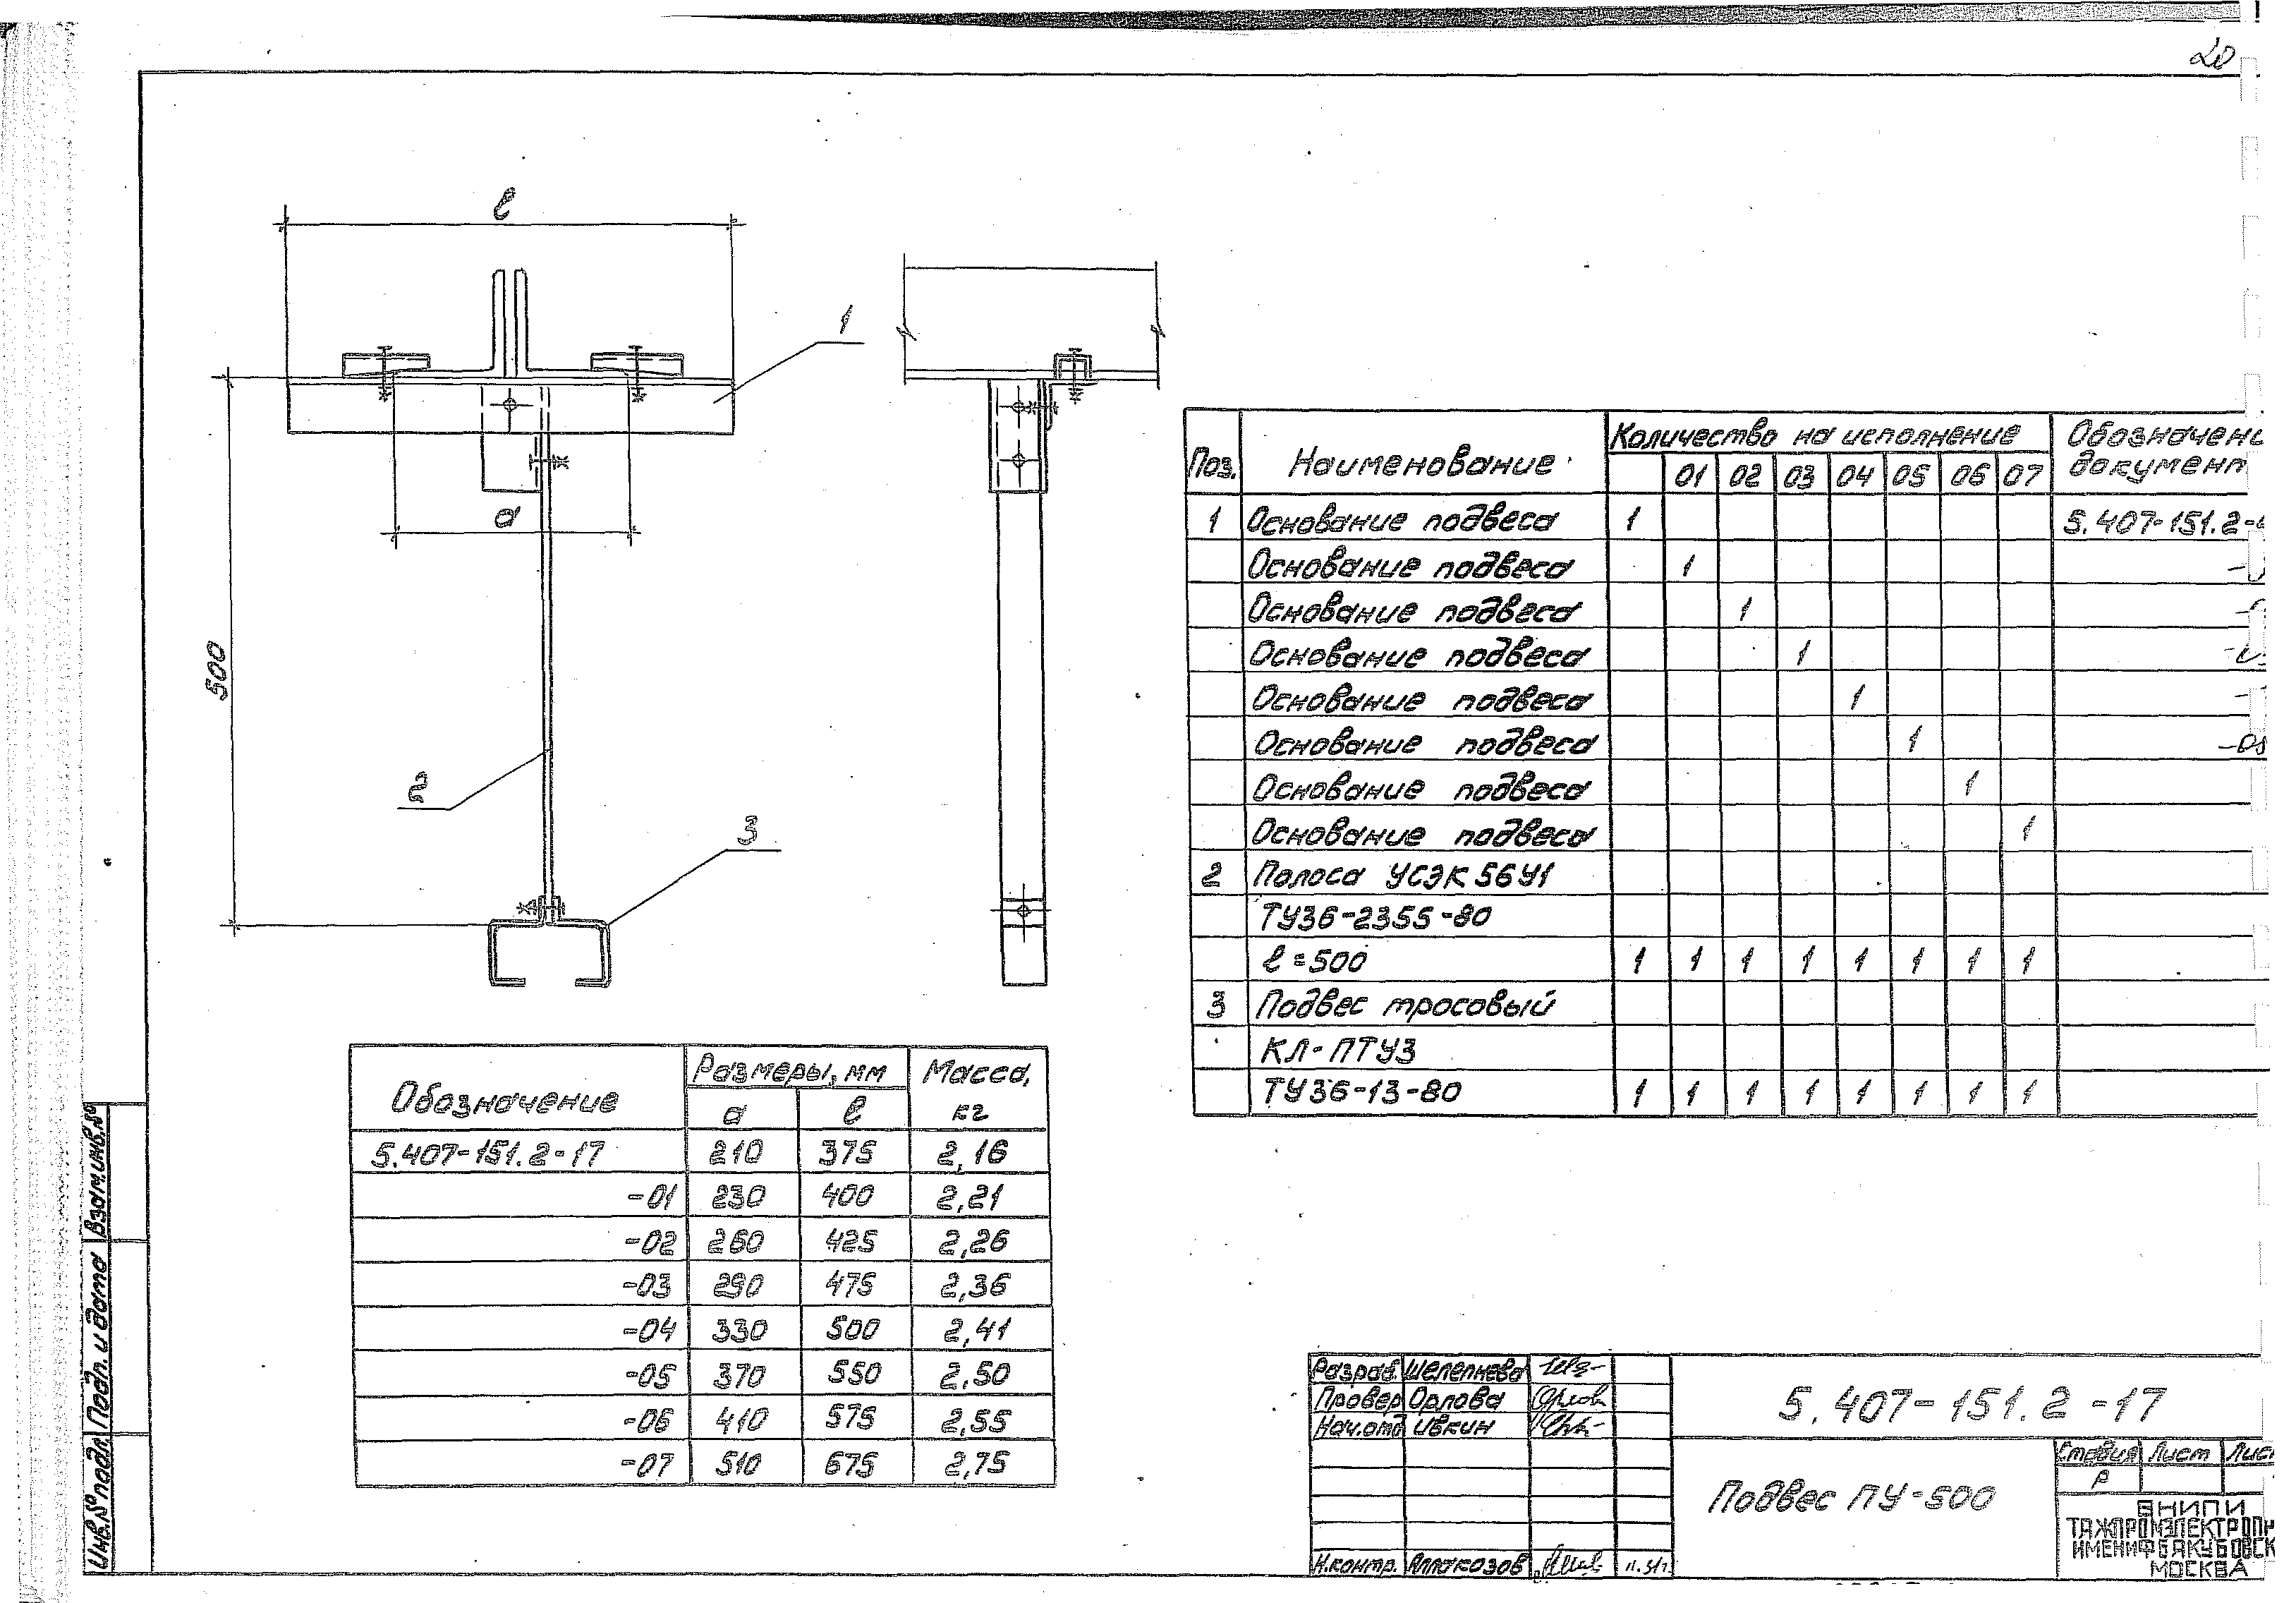 20
l
1
a
500
2
3
Поз. Наименование Количество на исполнение
01 02 03 04 05 06 07
1 Основание подвеса 1 5.407-151.2-
Основание подвеса 1
Основание подвеса 1
Основание подвеса 1
Основание подвеса 1
Основание подвеса 1
Основание подвеса 1
Основание подвеса 1
2 Полоса УСЭК 56У1
ТУ36-2355-80
l=500 1 1 1 1 1 1 1 1
3 Подвес тросовый
КЛ-ПТУ3
ТУ36-13-80 1 1 1 1 1 1 1 1
Обозначение Размеры, мм Масса, кг
a l
5.407-151.2-17 210 375 2,16
-01 230 400 2,21
-02 260 425 2,26
-03 290 475 2,36
-04 330 500 2,41
-05 370 550 2,50
-06 410 575 2,55
-07 510 675 2,75
Взам. инв. №
Подп. и дата
Инв. № подл.
Разраб. Шелепнева
Провер Орлова
Нач.отд Ивкин
Н.контр.
5.407-151.2-17
Подвес ПУ-500
Стадия Лист
Р
ВНИПИ
МОСКВА